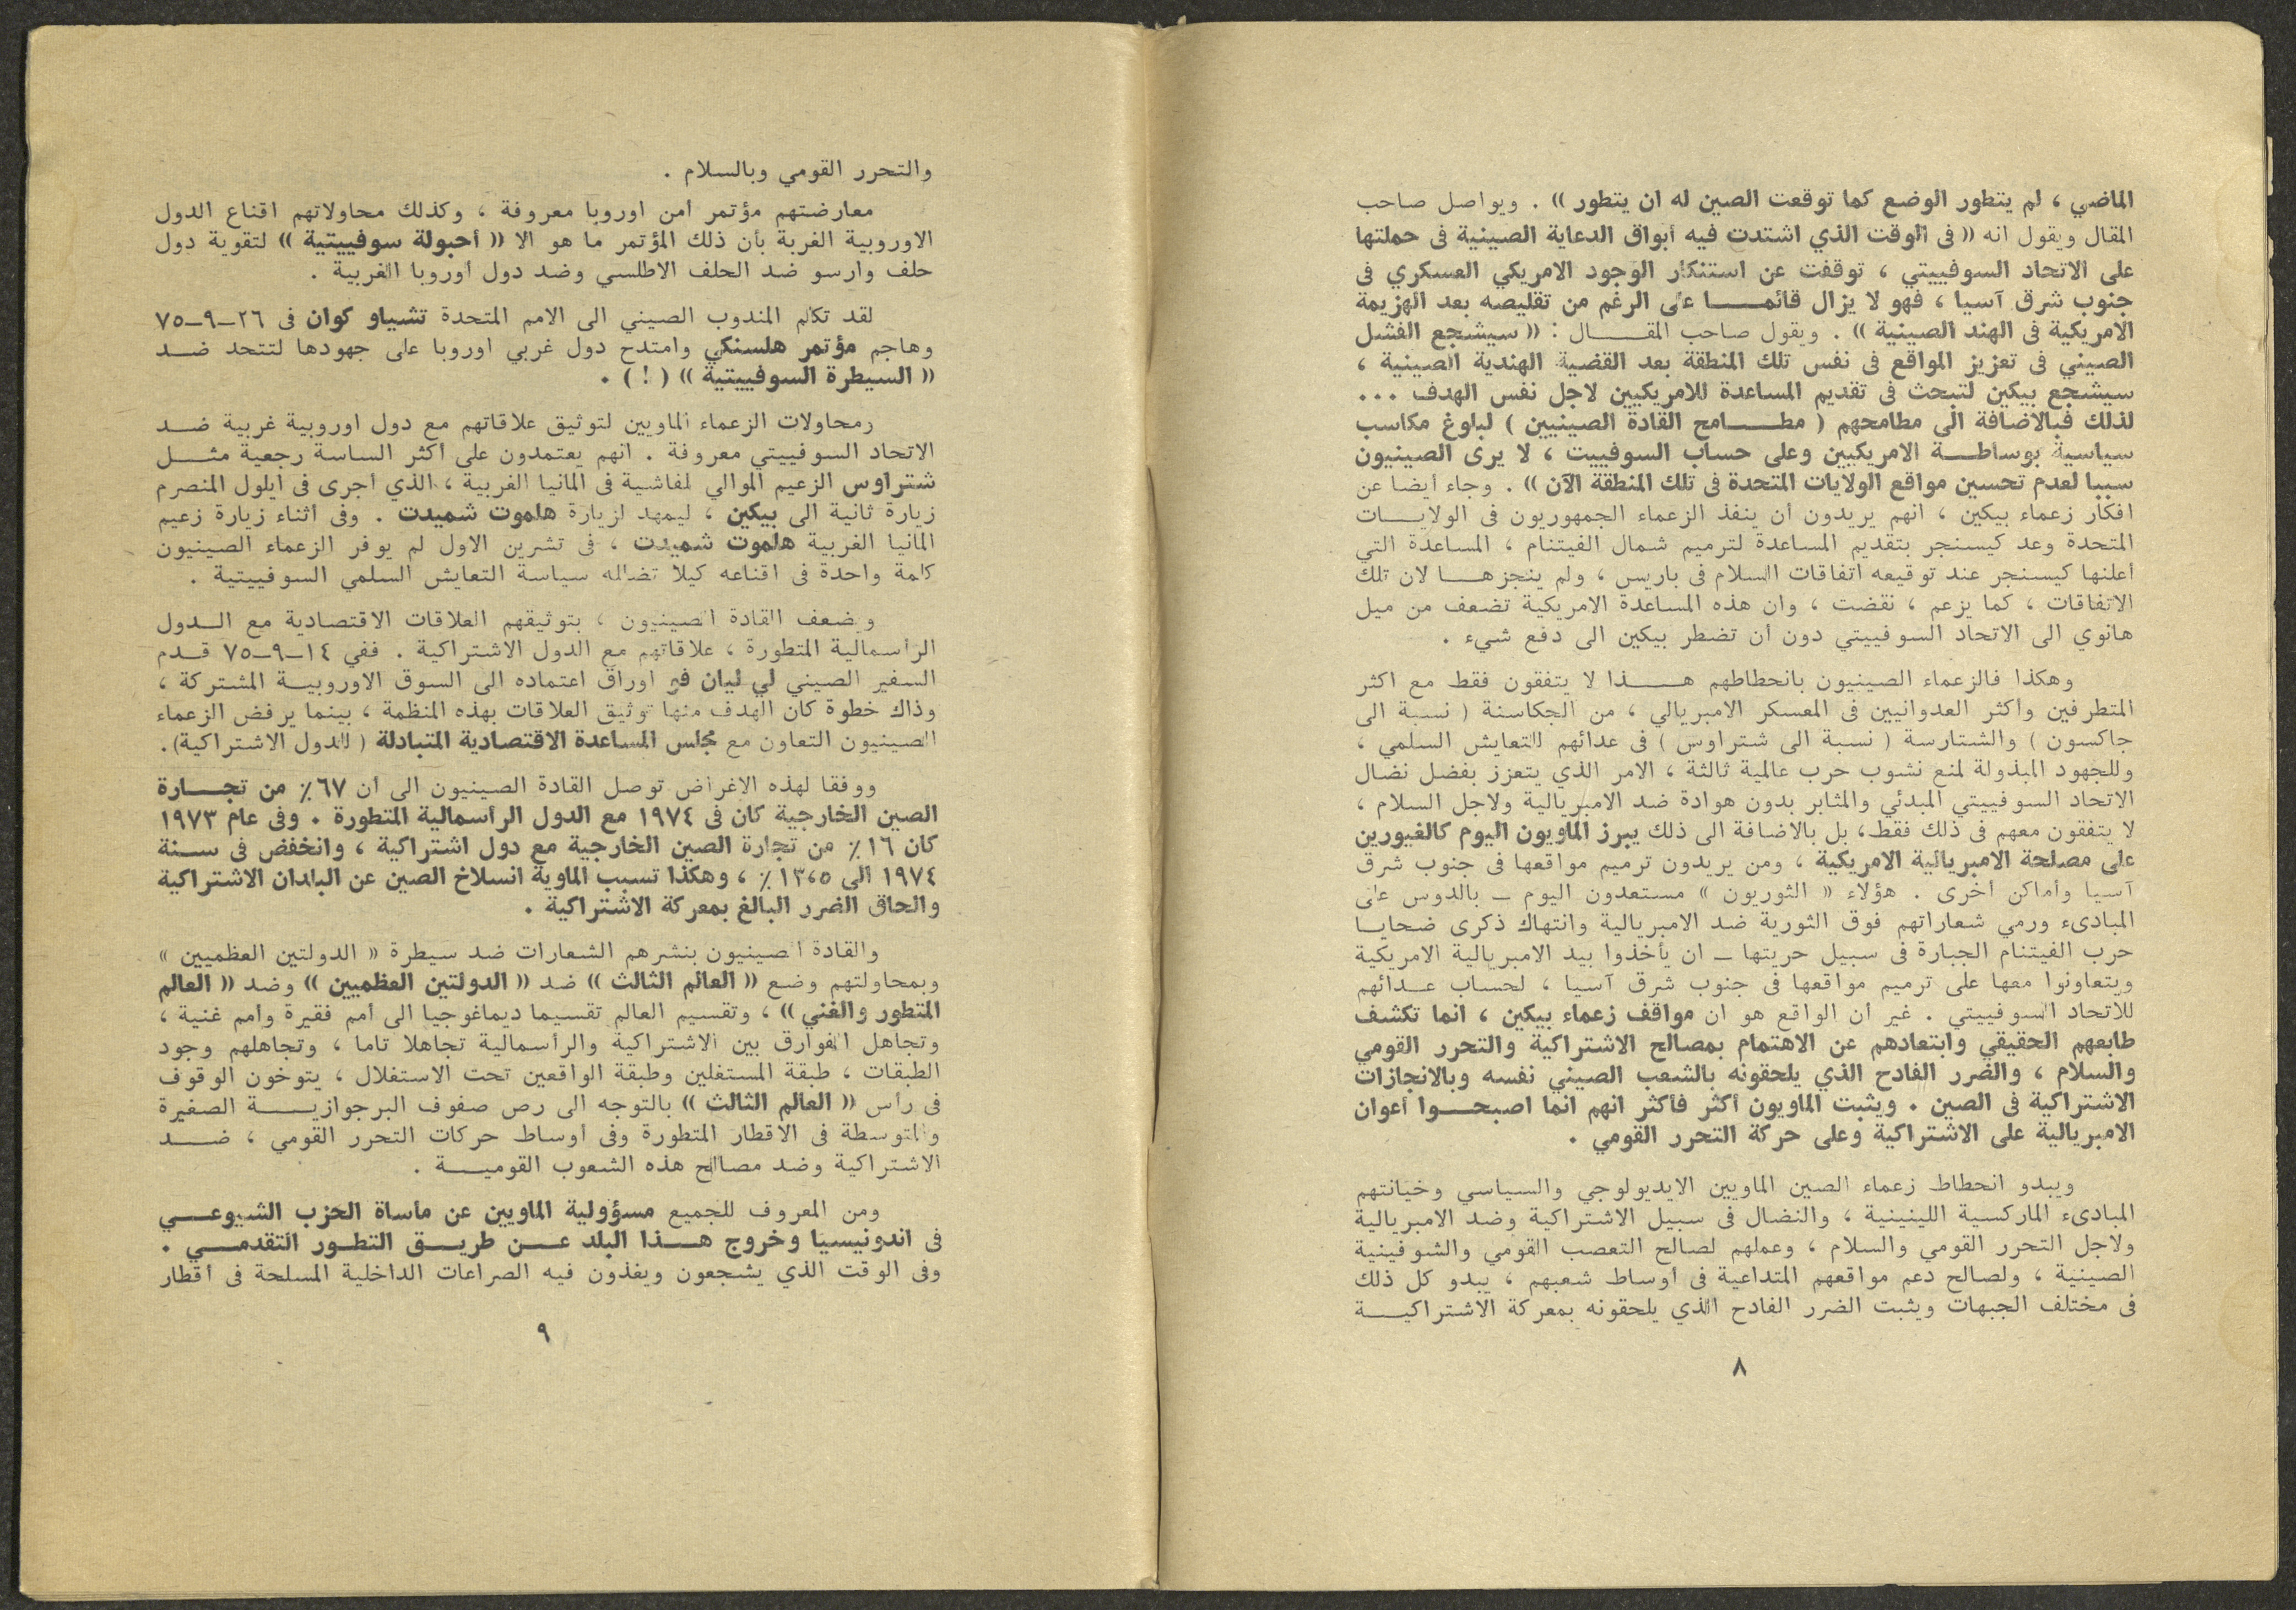 الماضي ، لم يتطور الوضع كما توقعت الصين له ان يتطور » . ويواصل صاحب
المقال ويقول انه « فى الوقت الذي اشتدت فيه أبواق الدعاية الصينية فى حملتها
على الاتحاد السوفييتي ، توقفت عن استنكار الوجود الامريكي العسكري فى
جنوب شرق آسيا ، فهو لا يزال قائمـــا على الرغم من تقليصه بعد الهزيمة
الامريكية فى الهند الصينية » . ويقول صاحب المقـــال : « سيشجع الفشل
الصيني فى تعزيز المواقع فى نفس تلك المنطقة بعد القضية الهندية الصينية ،
سيشجع بيكين لتبحث فى تقديم المساعدة للامريكيين لاجل نفس الهدف ...
لذلك فبالاضافة الى مطامحهم ( مطـــامح القادة الصينيين ) لبلوغ مكاسب
سياسية بوساطـــة الامريكيين وعلى حساب السوفييت ، لا يرى الصينيون
سببا لعدم تحسين مواقع الولايات المتحدة فى تلك المنطقة الآن » . وجاء أيضا عن
افكار زعماء بيكين ، انهم يريدون أن ينفذ الزعماء الجمهوريون فى الولايـــات
المتحدة وعد كيسنجر بتقديم المساعدة لترميم شمال الفيتنام ، المساعدة التي
أعلنها كيسنجر عند توقيعه اتفاقات السلام فى باريس ، ولم ينجزهـــا لان تلك
الاتفاقات ، كما يزعم ، نقضت ، وان هذه المساعدة الامريكية تضعف من ميل
هانوي الى الاتحاد السوفييتي دون أن تضطر بيكين الى دفع شيء .
وهكذا فالزعماء الصينيون بانحطاطهم هـــذا لا يتفقون فقط مع اكثر
المتطرفين واكثر العدوانيين فى المعسكر الامبريالي ، من الجكاسنة ( نسبة الى
جاكسون ) والشتارسة ( نسبة الى شتراوس ) فى عدائهم للتعايش السلمي ،
وللجهود المبذولة لمنع نشوب حرب عالمية ثالثة ، الامر الذي يتعزز بفضل نضال
الاتحاد السوفييتي المبدئي والمثابر بدون هوادة ضد الامبريالية ولاجل السلام ،
لا يتفقون معهم فى ذلك فقط، بل بالاضافة الى ذلك يبرز الماويون اليوم كالغيورين
على مصلحة الامبريالية الامريكية ، ومن يريدون ترميم مواقعها فى جنوب شرق
آسيا وأماكن أخرى . هؤلاء « الثوريون » مستعدون اليوم ـ بالدوس على
المبادىء ورمي شعاراتهم فوق الثورية ضد الامبريالية وانتهاك ذكرى ضحايـا
حرب الفيتنام الجبارة فى سبيل حريتها ـ ان يأخذوا بيد الامبريالية الامريكية
ويتعاونوا معها على ترميم مواقعها فى جنوب شرق آسيا ، لحساب عـدائهم
للاتحاد السوفييتي . غير أن الواقع هو ان مواقف زعماء بيكين ، انما تكشف
طابعهم الحقيقي وابتعادهم عن الاهتمام بمصالح الاشتراكية والتحرر القومي
والسلام ، والضرر الفادح الذي يلحقونه بالشعب الصيني نفسه وبالانجازات
الاشتراكية فى الصين . ويثبت الماويون أكثر فأكثر انهم انما اصبحـــوا أعوان
الامبريالية على الاشتراكية وعلى حركة التحرر القومي .
ويبدو انحطاط زعماء الصين الماويين الايديولوجي والسياسي وخيانتهم
المبادىء الماركسية اللينينية ، والنضال فى سبيل الاشتراكية وضد الامبريالية
ولاجل التحرر القومي والسلام ، وعملهم لصالح التعصب القومي والشوفينية
الصينية ، ولصالح دعم مواقعهم المتداعية فى أوساط شعبهم ، يبدو كل ذلك
فى مختلف الجبهات ويثبت الضرر الفادح الذي يلحقونه بمعركة الاشتراكيـــة
٨
والتحرر القومي وبالسلام .
معارضتهم مؤتمر امن اوروبا معروفة ، وكذلك محاولاتهم اقناع الدول
الاوروبية الغربة بأن ذلك المؤتمر ما هو الا « أحبولة سوفييتية » لتقوية دول
حلف وارسو ضد الحلف الاطلسي وضد دول أوروبا الغربية .
لقد تكلم المندوب الصيني الى الامم المتحدة تشياو كوان فى ٢٦ـ٩ـ٧٥
وهاجم مؤتمر هلسنكي وامتدح دول غربي اوروبا على جهودها لتتحد ضـــد
« السيطرة السوفييتية » ( ! ) .
رمحاولات الزعماء الماويين لتوثيق علاقاتهم مع دول اوروبية غربية ضـــد
الاتحاد السوفييتي معروفة . انهم يعتمدون على أكثر الساسة رجعية مثـــل
شتراوس الزعيم الموالي للفاشية فى المانيا الغربية ، الذي أجرى فى ايلول المنصرم
زيارة ثانية الى بيكين ، ليمهد لزيارة هلموت شميدت . وفى أثناء زيارة زعيم
المانيا الغربية هلموت شميدت ، فى تشرين الاول لم يوفر الزعماء الصينيون
كلمة واحدة فى اقناعه كيلا تضلله سياسة التعايش السلمي السوفييتية .
ويضعف القادة الصينيون ، بتوثيقهم العلاقات الاقتصادية مع الـــدول
الرأسمالية المتطورة ، علاقاتهم مع الدول الاشتراكية . ففي ١٤ـ٩ـ٧٥ قـــدم
السفير الصيني لي ليان في اوراق اعتماده الى السوق الاوروبيـــة المشتركة ،
وذاك خطوة كان الهدف منها توثيق العلاقات بهذه المنظمة ، بينما يرفض الزعماء
الصينيون التعاون مع مجلس المساعدة الاقتصادية المتبادلة ( للدول الاشتراكية).
ووفقا لهذه الاغراض توصل القادة الصينيون الى أن ٦٧٪ من تجـــارة
الصين الخارجية كان فى ١٩٧٤ مع الدول الرأسمالية المتطورة . وفى عام ١٩٧٣
كان ١٦٪ من تجارة الصين الخارجية مع دول اشتراكية ، وانخفض فى سـنة
١٩٧٤ الى ١٣،٥٪ ، وهكذا تسبب الماوية انسلاخ الصين عن البلدان الاشتراكية
والحاق الضرر البالغ بمعركة الاشتراكية .
والقادة الصينيون بنشرهم الشعارات ضد سيطرة « الدولتين العظميين »
وبمحاولتهم وضع « العالم الثالث » ضد « الدولتين العظميين » وضد « العالم
المتطور والغني » ، وتقسيم العالم تقسيما ديماغوجيا الى أمم فقيرة وأمم غنية ،
وتجاهل الفوارق بين الاشتراكية والرأسمالية تجاهلا تاما ، وتجاهلهم وجود
الطبقات ، طبقة المستغلين وطبقة الواقعين تحت الاستغلال ، يتوخون الوقوف
فى رأس « العالم الثالث » بالتوجه الى رص صفوف البرجوازيـــة الصغيرة
والمتوسطة فى الاقطار المتطورة وفى أوساط حركات التحرر القومي ، ضـــد
الاشتراكية وضد مصالح هذه الشعوب القوميـــة .
ومن المعروف للجميع مسؤولية الماويين عن مأساة الحزب الشيوعـــي
فى اندونيسيا وخروج هـــذا البلد عـــن طريـــق التطـور التقدمـــي .
وفى الوقت الذي يشجعون ويغذون فيه الصراعات الداخلية المسلحة فى أقطار
٩